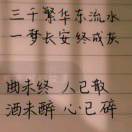 三千繁华东流水
一梦长安终成灰
曲未终 人已散
酒未醉 心已碎